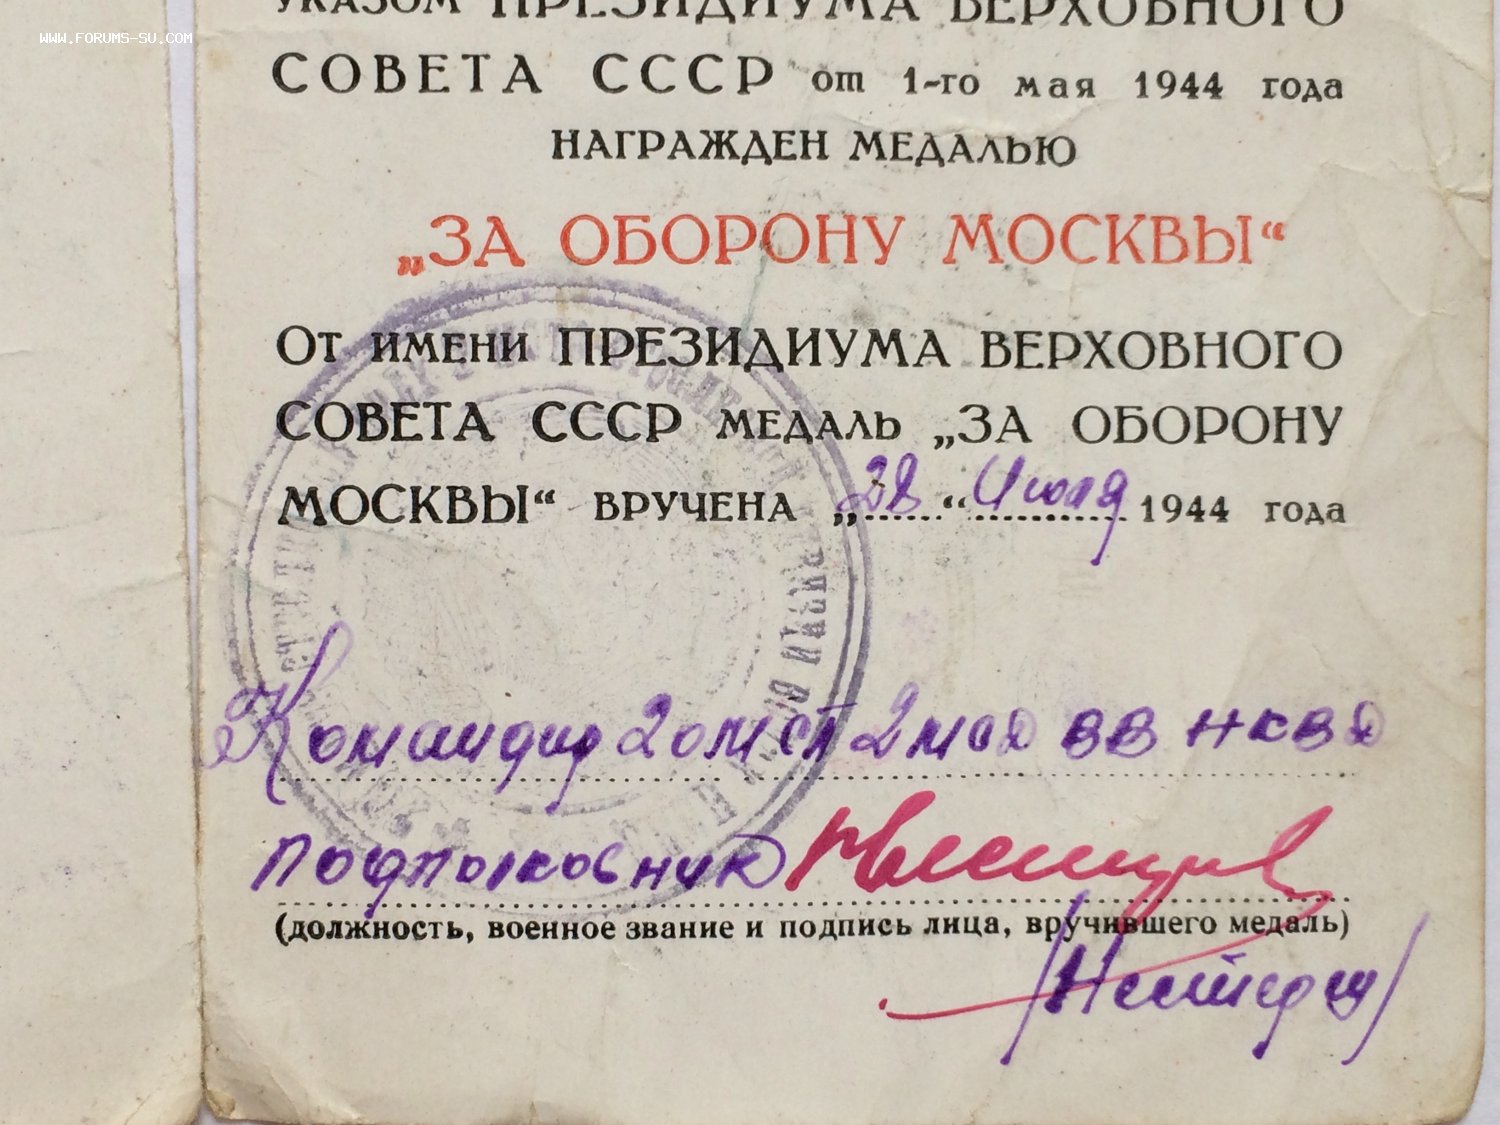 WWW.FORUMS-SU.COM
УКАЗОМ ПРЕЗИДИУМА ВЕРХОВНОГО
СОВЕТА СССР от 1-го мая 1944 года
НАГРАЖДЕН МЕДАЛЬЮ
„ЗА ОБОРОНУ МОСКВЫ“
От имени ПРЕЗИДИУМА ВЕРХОВНОГО
СОВЕТА СССР МЕДАЛЬ „ЗА ОБОРОНУ
МОСКВЫ“ ВРУЧЕНА „28“ Июля 1944 года
Командир 2 омсп 2 мсд ВВ НКВД
Подполковник
(должность, военное звание и подпись лица, вручившего медаль)